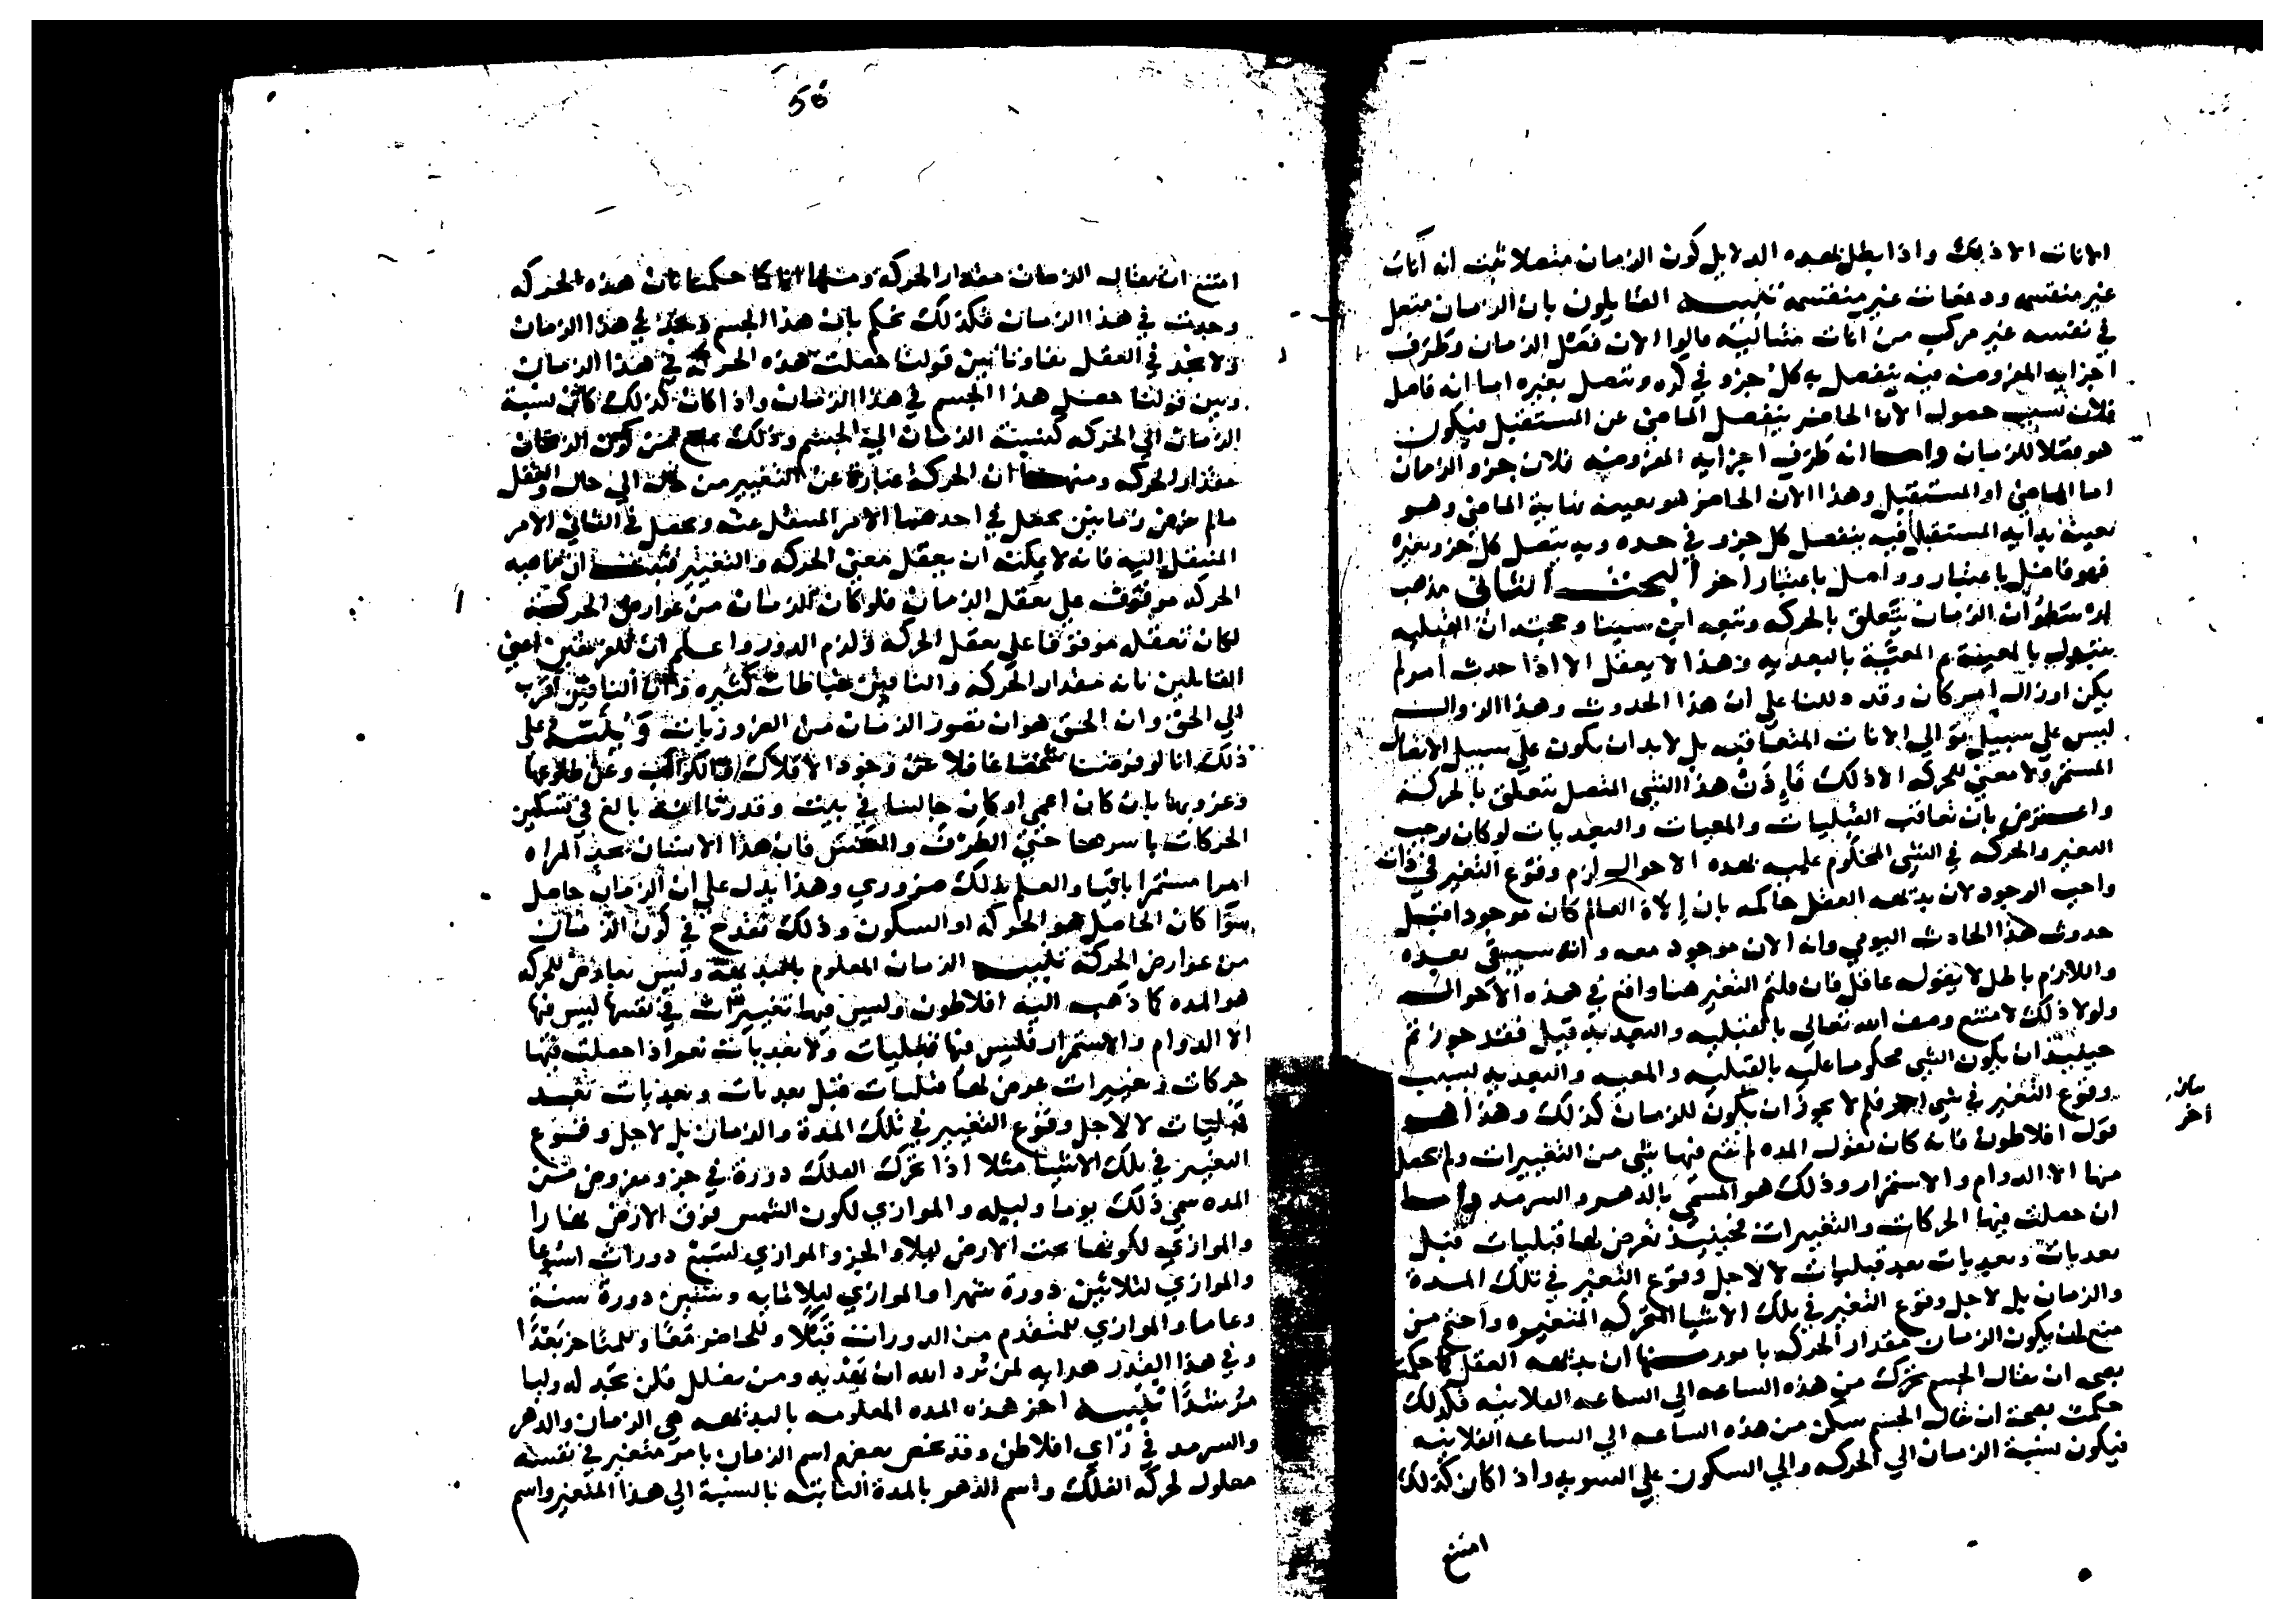 الانات الا ذلك واذا بطل بهذه الدلايل كون الزمان متصلا ثبت انه آنات
غير منقسمه ودفعات غير منقسمه تنبيه القايلون بان الزمان متصل
في نفسه غير مركب من آنات متتالية قالوا الان فصل الزمان وطرف
اجزايه المفروضه فيه ينفصل به كل جزو في حده ويتصل بغيره اما انه فاصل
فلان بسبب حصول الان الحاضر ينفصل الماضي عن المستقبل فيكون
هو فصلا للزمان واما انه طرف اجزايه المفروضه فلان جزو الزمان
اما الماضي او المستقبل وهذا الان الحاضر هو بعينه نهاية الماضي وهو
بعينه بداية المستقبل فبه ينفصل كل جزو في حده وبه يتصل كل جزو بغيره
فهو فاصل باعتبار وواصل باعتبار اخر البحث الثاني مذهب
ارسطو ان الزمان يتعلق بالحركه وتبعه ابن سينا وحجته ان القبليه
تتبدل بالمعية و المعيّة بالبعديه وهذا لا يعقل الا اذا حدث امر لم
يكن او زال امر كان وقد دللنا على ان هذا الحدوث وهذا الزوال
ليس على سبيل توالي الانات المتعاقبه بل لا بد ان يكون على سبيل الاتصال
المستمر ولا معنى للحركه الا ذلك فاذن هذا الشي المتصل يتعلق بالحركة
واعترض بان تعاقب القبليات والمعيات والبعديات لو كان يوجب
التغير والحركه في الشي المحكوم عليه بهذه الاحوال لزم وقوع التغير في ذات
واجب الوجود لان بديهه العقل حاكمه بان إلاه العالم كان موجودا قبل
حدوث هذا الحادث اليومي وانه الان موجود معه وانه سيبقى بعده
واللازم باطل لا يقوله عاقل فان قلتم التغير هنا واقع في هذه الاحوال
ولولا ذلك لامتنع وصف الله تعالى بالقبليه والبعديه قيل فقد جوزتم
حينيذ ان يكون الشي محكوما عليه بالقبليه والمعيه والبعديه بسبب
وقوع التغير في شي اخر فلم لا يجوز ان يكون للزمان كذلك وهذا هو
قول افلاطون فانه كان يقول المده لم تقع فيها شي من التغييرات ولم يحصل
منها الا الدوام والاستمرار وذلك هو المسمى بالدهر والسرمد واما
ان حصلت فيها الحركات والتغييرات فحينيذ تعرض لها قبليات قبل
بعديات وبعديات بعد قبليات لا لاجل وقوع التغير في تلك المدة
والزمان بل لاجل وقوع التغير في تلك الاشيا المتحركه المتغيره واحتج من
منع ان يكون الزمان مقدار الحركه بامور منها ان بديهه العقل كما حكمت
بصحه ان يقال الجسم تحرك من هذه الساعه الي الساعه الفلانيه فكذلك
حكمت بصحة ان يقال الجسم سكن من هذه الساعه الي الساعه الفلانيه
فيكون نسبة الزمان الي الحركه والي السكون على السويه واذا كان كذلك
امتنع
بيان
آخر
50
امتنع ان يقال الزمان مقدار الحركة ومنها انا كما حكمنا بان هذه الحركه
وجدت في هذا الزمان فكذلك نحكم بان هذا الجسم وجد في هذا الزمان
ولا نجد في العقل تفاوتا بين قولنا حصلت هذه الحركة في هذا الزمان
وبين قولنا حصل هذا الجسم في هذا الزمان واذا كان كذلك كانت نسبة
الزمان الي الحركه كنسبة الزمان الي الجسم وذلك يمنع من كون الزمان
مقدار الحركه ومنها ان الحركة عبارة عن التغيير من حال الي حال والعقل
مالم يفرض زمانين يحصل في احدهما الامر المنتقل عنه ويحصل في الثاني الامر
المنتقل اليه فانه لا يمكنه ان يعقل معنى الحركه والتغيير فثبت ان ماهيه
الحركه موقوف على تعقل الزمان فلو كان الزمان من عوارض الحركة
لكان تعقله موقوفا على تعقل الحركه ولزم الدور واعلم ان للفريقين اعني
القايلين بانه مقدار الحركه والنافين خباطات كثيره وان النافين اقرب
الي الحق وان الحق هو ان تصور الزمان من الضروريات وتنبه على
ذلك انا لو فرضنا شخصا غافلا عن وجود الافلاك والكواكب وعن طلوعها
وغروبها بان كان اعمى او كان جالسا في بيت وقدرنا انه بالغ في تسكين
الحركات باسرها حتى الطرف والتنفس فان هذا الانسان يجد المراه
امرا مستمرا باقيا والعلم بذلك ضروري وهذا يدل على ان الزمان حاصل
سوا كان الحاصل هو الحركه او السكون وذلك تقدح في كون الزمان
من عوارض الحركة تنبيه الزمان المعلوم بالبديهة وليس بعارض للحركه
هو المده كما ذهب اليه افلاطون وليس فيها تغييرات في نفسها ليس فيها
الا الدوام والاستمرار فليس فيها قبليات ولا بعديات نعم اذا حصلت فيها
حركات وتغييرات عرض لها قبليات قبل بعديات وبعديات بعد
قبليات لا لاجل وقوع التغيير في تلك المدة والزمان بل لاجل وقوع
التغير في تلك الاشيا مثلا اذا تحرك الفلك دورة في جزو مفروض من
المده سمي ذلك يوما وليله والموازي لكون الشمس فوق الارض نهارا
والموازي لكونها تحت الارض ليلا والجز والموازي لسبع دورات اسبوعا
والموازي لثلاثين دورة شهرا والموازي لثلاثمايه وستين دورة سنة
وعاما والموازي للمتقدم من الدورات قبلا وللحاضر معا وللمتاخر بعدا
وفي هذا القدر هدايه لمن يرد الله ان يهديه ومن يضلل فلن تجد له وليا
مرشدا تنبيه اخر هذه المده المعلومه بالبديهه هي الزمان والدهر
والسرمد في رأي افلاطن وقد خص بعضهم اسم الزمان بامر متغير في نفسه
معلول لحركة الفلك واسم الدهر بالمدة الثابته بالنسبة الي هذا المتغير واسم